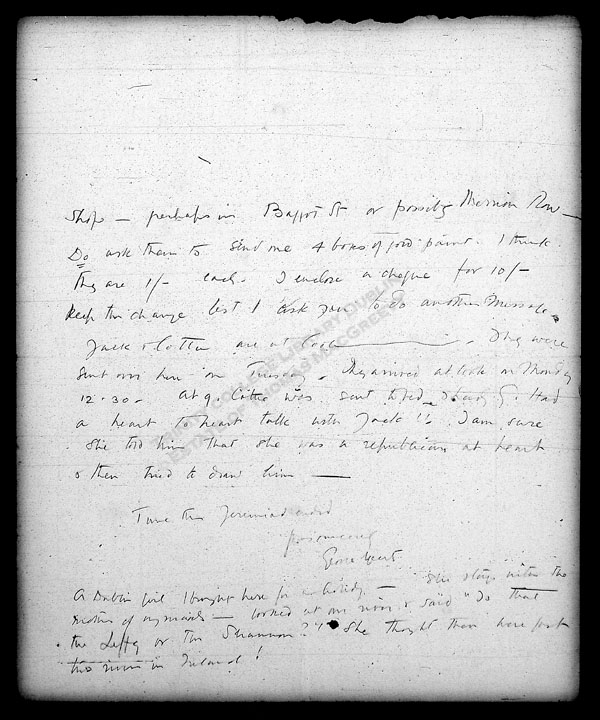 shop — perhaps in Baggot St or possibly Merrion Row —
Do ask them to send me 4 boxes of gold paint. I think
they are 1/- each. I enclose a cheque for 10/-
Keep the change lest I ask you to do another message.
Jack & Cottie are at Coole. They were
sent over here on Tuesday. They arrived at Coole on Monday
12.30. At 9. Cottie was sent to bed & Lady G. had
a heart to heart talk with Jack!! I am sure
she told him that she was a republican at heart
& then tried to draw him —
Time this Jeremiad ended
yours
George Yeats
A Dublin girl I brought here for a holiday — she stays with the
mother of my maids — looked at our river & said "Is that
the Liffey or the Shannon?" She thought there were just
two rivers in Ireland!
DUBLIN
ESTATE OF THOMAS MACGREEVY